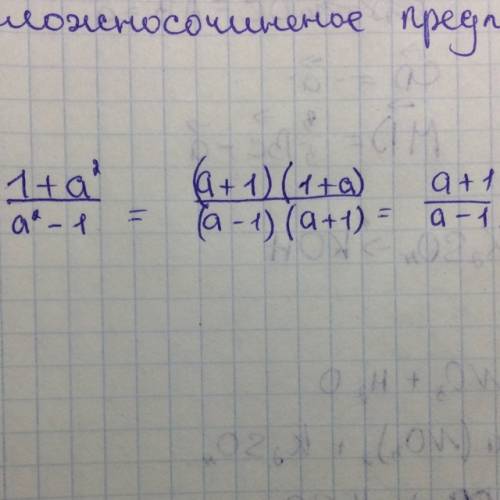 ложносочиненое предл
1+a² / a²-1 = (a+1)(1+a) / (a-1)(a+1) = a+1 / a-1